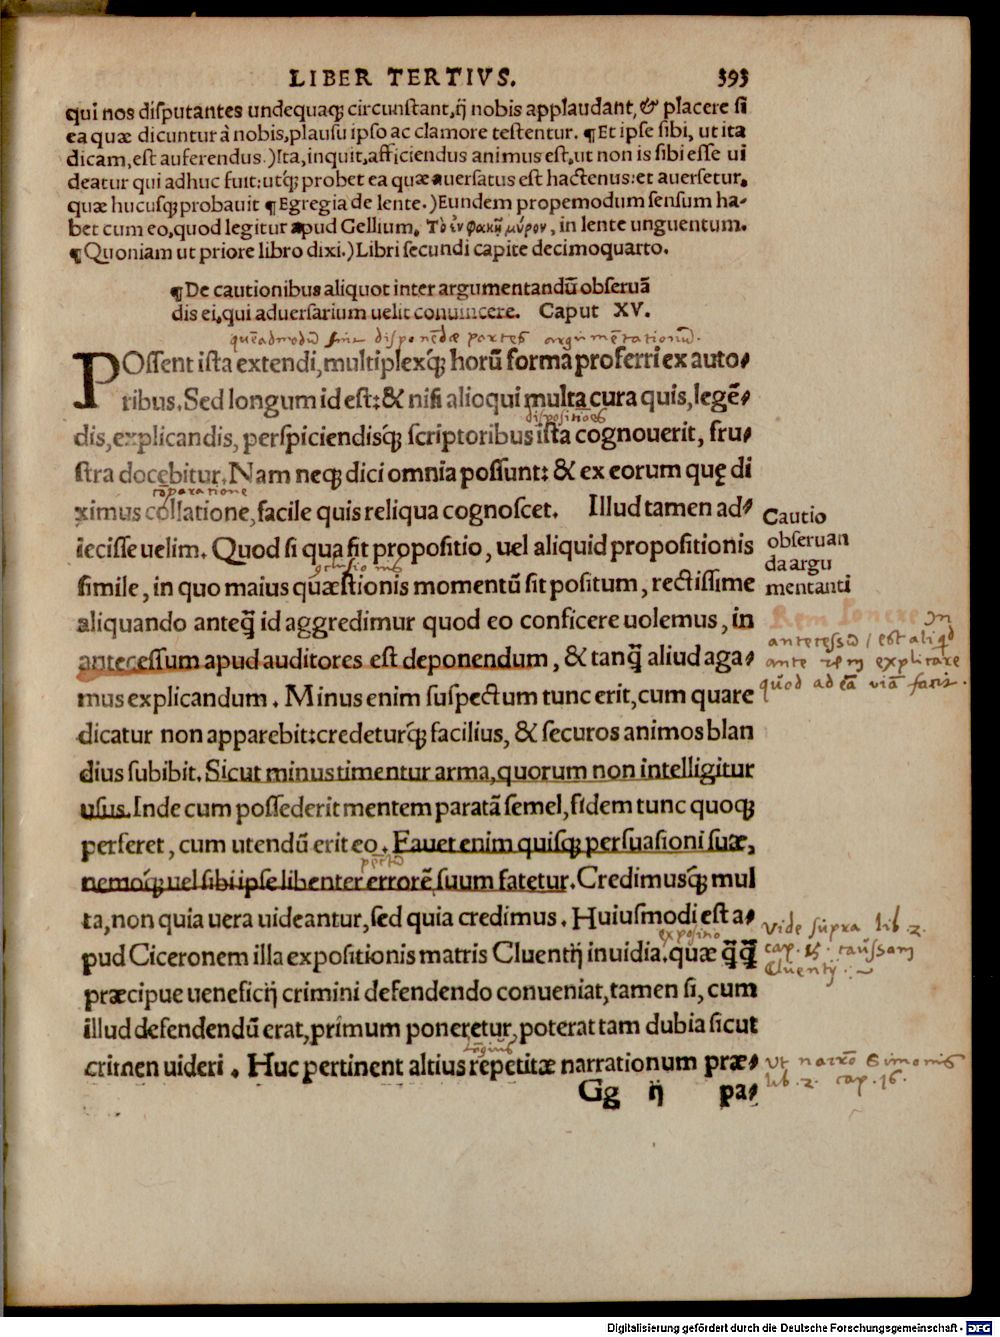 LIBER TERTIVS. 393
qui nos disputantes undequaq; circunstant, ij nobis applaudant, & placere si
ea quæ dicuntur à nobis, plausu ipso ac clamore testentur. ¶ Et ipse sibi, ut ita
dicam, est auferendus.) Ita, inquit, afficiendus animus est, ut non is sibi esse ui
deatur qui adhuc fuit: utq́; probet ea quæ auersatus est hactenus: et auersetur,
quæ hucusq; probauit ¶ Egregia de lente.) Eundem propemodum sensum ha-
bet cum eo, quod legitur apud Gellium. Τὸ ἐν φακῇ μύρον, in lente unguentum.
¶ Quoniam ut priore libro dixi.) Libri secundi capite decimoquarto.
¶ De cautionibus aliquot inter argumentandũ obseruã
dis ei, qui aduersarium uelit conuincere. Caput XV.
quẽadmodũ sint disponẽdæ partes argumẽtationũ.
POssent ista extendi, multiplexq́; horũ forma proferri ex auto-
ribus. Sed longum id est: & nisi alioqui multa cura quis, legẽ-
dispositiões
dis, explicandis, perspiciendisq́; scriptoribus ista cognouerit, fru-
stra docebitur. Nam neq; dici omnia possunt: & ex eorum quę di
cõparatione
ximus collatione, facile quis reliqua cognoscet. Illud tamen ad-
iecisse uelim. Quod si qua sit propositio, uel aliquid propositionis
simile, in quo maius quæstionis momentũ sit positum, rectissime
aliquando anteq̃ id aggredimur quod eo conficere uolemus, in
antecessum apud auditores est deponendum, & tanq̃ aliud aga-
mus explicandum. Minus enim suspectum tunc erit, cum quare
dicatur non apparebit: credeturq́; facilius, & securos animos blan
dius subibit. Sicut minus timentur arma, quorum non intelligitur
usus. Inde cum possederit mentem paratã semel, fidem tunc quoq;
perferet, cum utendũ erit eo. Fauet enim quisq; persuasioni suæ,
nemoq́; uel sibi ipse libenter errorẽ suum fatetur. Credimusq́; mul
ta, non quia uera uideantur, sed quia credimus. Huiusmodi est a-
expositio
pud Ciceronem illa expositionis matris Cluentij inuidia. quæ q̃q̃
præcipue ueneficij crimini defendendo conueniat, tamen si, cum
illud defendendũ erat, primum poneretur, poterat tam dubia sicut
longius
crimen uideri. Huc pertinent altius repetitæ narrationum præ-
Gg ij pa-
Cautio
obseruan
da argu
mentanti
Rem Ponere In
antecessũ / est aliqd
ante rem explicare
quod ad eã viã facit.
Vide supra lib. 2.
cap. 15. caussam
Cluentij.
Vt narrõ Simonis
lib. 2. cap. 16.
Digitalisierung gefördert durch die Deutsche Forschungsgemeinschaft - DFG